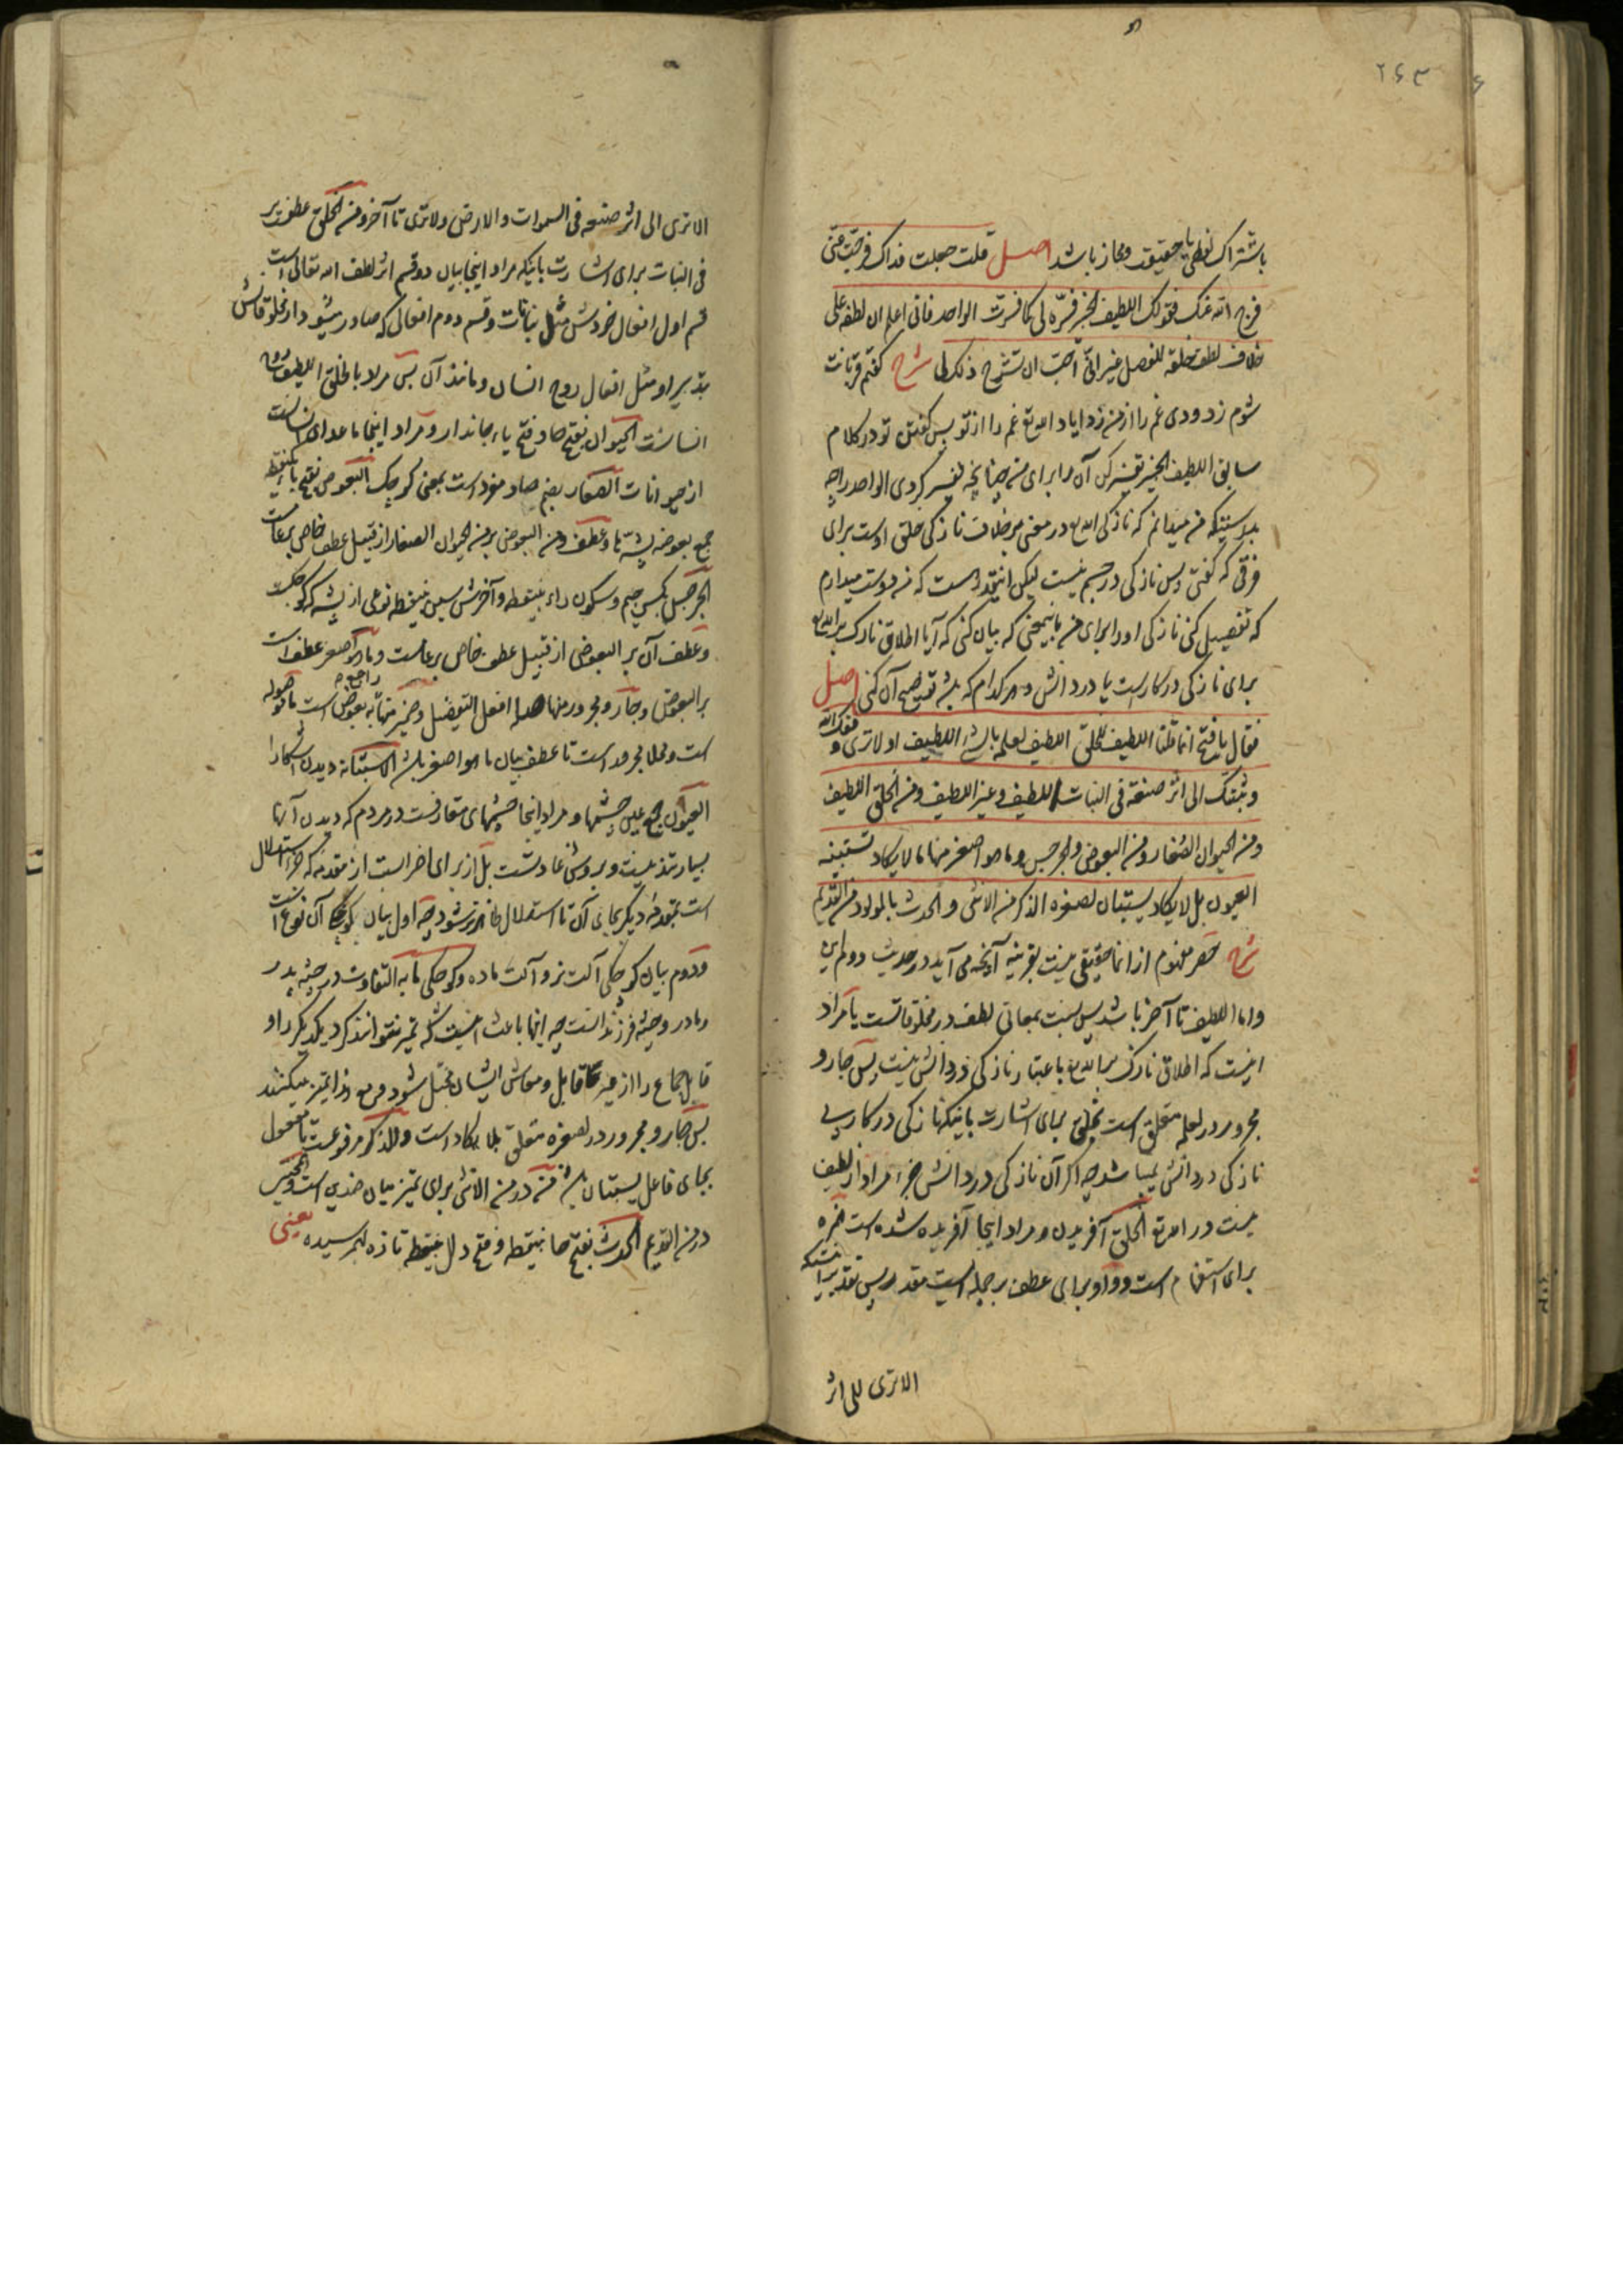 ۲۶۳
باشتراک لفظی یا حقیقت و مجاز باشد اصل قلت جعلت فداک فرجت عنّی
فرج الله عنک فقولک اللطیف الخبیر فسّره لی کما فسّرت الواحد فانی اعلم ان لطفه علی
خلاف لطف خلقه للفصل غیر انّی احبّ ان تشرح ذلک لی شرح گفتم قربانت
شوم زدودی غم را از من زداید الله تع غم را از تو پس گفتن تو در کلام
سابق اللطیف الخبیر تفسیر کن آن را برای من چنانچه تفسیر کردی الواحد را چه
بدرستیکه من میدانم که نازکی الله تع در معنی بر خلاف نازکی خلق اوست برای
فرقی که گفتی پس نازکی در جسم نیست لیکن اینقدر هست که من دوست میدارم
که تفصیل کنی نازکی او را برای من باینمعنی که بیان کنی که آیا اطلاق نازک بر الله تع
برای نازکی در کار است یا در دانش و هر کدام که باشد توضیح آن کنی اصل
فقال یا فتح انما قلنا اللطیف للخلق اللطیف لعلمه بالشیء اللطیف اولا تری وفقک الله
و ثبتک الی اثر صنعه فی النبات اللطیف و غیر اللطیف و من الخلق اللطیف
و من الحیوان الصغار و من البعوض و الجرجس و ما هو اصغر منها ما لا یکاد تستبینه
العیون بل لا یکاد یستبان لصغره الذکر من الانثی و الحدث المولود من القدیم
شرح حصر مفهوم از انما حقیقی نیست بقرینه آنچه می آید در حدیث دوم این
و اما اللطیف تا آخر باشد پس نسبت بمعانی لطف در مخلوقاتست یا مراد
اینست که اطلاق نازک بر الله تع باعتبار نازکی در دانش نیست پس جار و
مجرور در لعلمه متعلق است بخلق برای اشارت باینکه نازکی در کار بی
نازکی در دانش نمیباشد چه اگر آن نازکی در دانش جزء مراد از لطیف
نیست در الله تع الخلق آفریدن و مراد اینجا آفریده شده است همزه
برای استفهام است و واو برای عطف بر جمله ایست مقدر پس تقدیر اینستکه
الا تری الی اثر
الا تری الی اثر صنعه فی السموات و الارض ولا تری تا آخر و من الخلق عطفست بر
فی النبات برای اشارت باینکه مراد اینجا بیان دو قسم اثر لطف الله تعالی است
قسم اول افعال خودش مثل نباتات و قسم دوم افعالی که صادر میشود از مخلوقاتش
بتدبیر او مثل افعال روح انسان و مانند آن پس مراد بالخلق اللطیف روح
انسانست الحیوان بفتح حا و فتح یاء جاندار و مراد اینجا ماعدای انسانست
از حیوانات الصغار بضم صاد مفرد است بمعنی کوچک البعوض بفتح با یکنقطه
جمع بعوضه پشه ها و عطف من البعوض بر من الحیوان الصغار از قبیل عطف خاص بر عامست
الجرجس بکسر جیم و سکون راء بینقطه و آخرش سین بینقطه نوعی از پشه که کوچکست
و عطف آن بر البعوض از قبیل عطف خاص بر عامست و ما هو اصغر عطف است
بر البعوض و جار و مجرور منها صله افعل التفضیل و ضمیر منها راجع به بعوض است ما موصوله
است و محلا مجرور است تا عطف بیان ما هو اصغر باشد الاستبانة دیدن آشکارا
العیون جمع عین چشمها و مراد اینجا چشمهای متعارفست در مردم که دیدن آنها
بسیار تند نیست و بر روش عادتست بل از برای اضراب است از مقدمه که جزء استدلال
است بمقدمه دیگر بجای آن تا استدلال ظاهرتر شود چه اول بیان کوچکی آن نوع است
و دوم بیان کوچکی آلت نر و آلت ماده و کوچکی ما به التفاوت در جثه پدر
و مادر و جثه فرزند است چه اینها باعث اینست که تمیز نتوانند کرد یکدیگر را و
قابل جماع را از غیر قابل و معاش ایشان مختل شود و مع هذا تمیز میکنند
پس جار و مجرور در لصغره متعلق بلا یکاد است و الذکر مرفوعست تا مفعول
بجای فاعل یستبان باشد من در من الانثی برای تمیز میان ضدین است و همچنین
در من القدیم الحدث بفتح حا بینقطه و فتح دال بینقطه تازه بهم رسیده یعنی